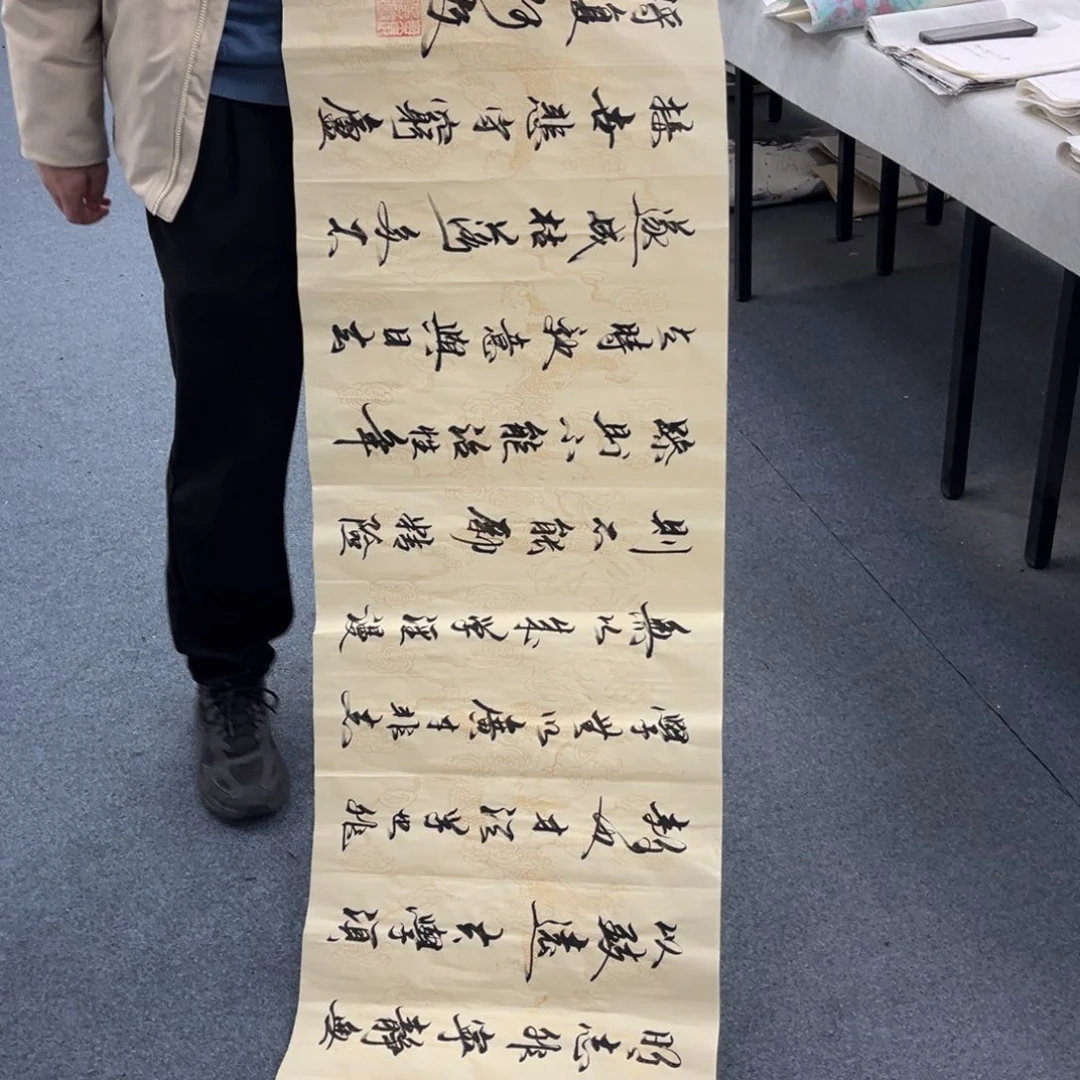 明志非寧靜無
以致遠夫學須
靜也才須學也非
學無以廣才非志
無以成學淫漫
則不能勵精險
躁則不能治性年
与時馳意與日去
遂成枯落多不
接世悲守窮廬
將復何及